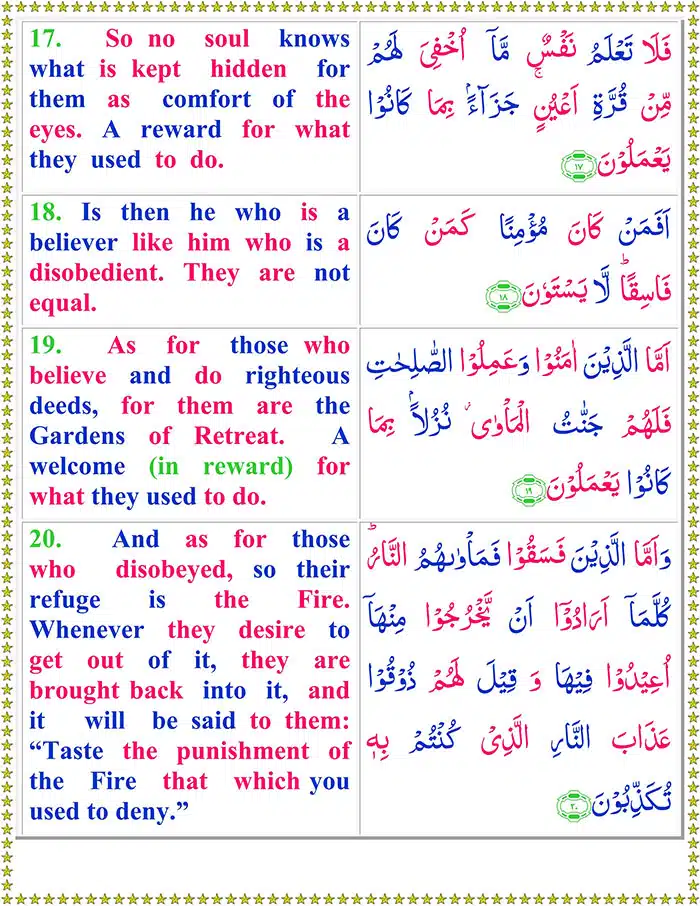 17. So no soul knows
what is kept hidden for
them as comfort of the
eyes. A reward for what
they used to do.
فَلَا تَعْلَمُ نَفْسٌ مَّاۤ اُخْفِىَ لَهُمْ
مِّنْ قُرَّةِ اَعْيُنٍۚ جَزَآءًۢ بِمَا كَانُوْا
يَعْمَلُوْنَ ۱۷
18. Is then he who is a
believer like him who is a
disobedient. They are not
equal.
اَفَمَنْ كَانَ مُؤْمِنًا كَمَنْ كَانَ
فَاسِقًاؕ لَّا يَسْتَوٗنَ ۱۸
19. As for those who
believe and do righteous
deeds, for them are the
Gardens of Retreat. A
welcome (in reward) for
what they used to do.
اَمَّا الَّذِيْنَ اٰمَنُوْا وَعَمِلُوا الصّٰلِحٰتِ
فَلَهُمْ جَنّٰتُ الْمَاْوٰى نُزُلًاۢ بِمَا
كَانُوْا يَعْمَلُوْنَ ۱۹
20. And as for those
who disobeyed, so their
refuge is the Fire.
Whenever they desire to
get out of it, they are
brought back into it, and
it will be said to them:
“Taste the punishment of
the Fire that which you
used to deny.”
وَاَمَّا الَّذِيْنَ فَسَقُوْا فَمَاْوٰٮهُمُ النَّارُؕ
كُلَّمَاۤ اَرَادُوْۤا اَنْ يَّخْرُجُوْا مِنْهَاۤ
اُعِيْدُوْا فِيْهَا وَ قِيْلَ لَهُمْ ذُوْقُوْا
عَذَابَ النَّارِ الَّذِىْ كُنْتُمْ بِهٖ
تُكَذِّبُوْنَ ۲۰